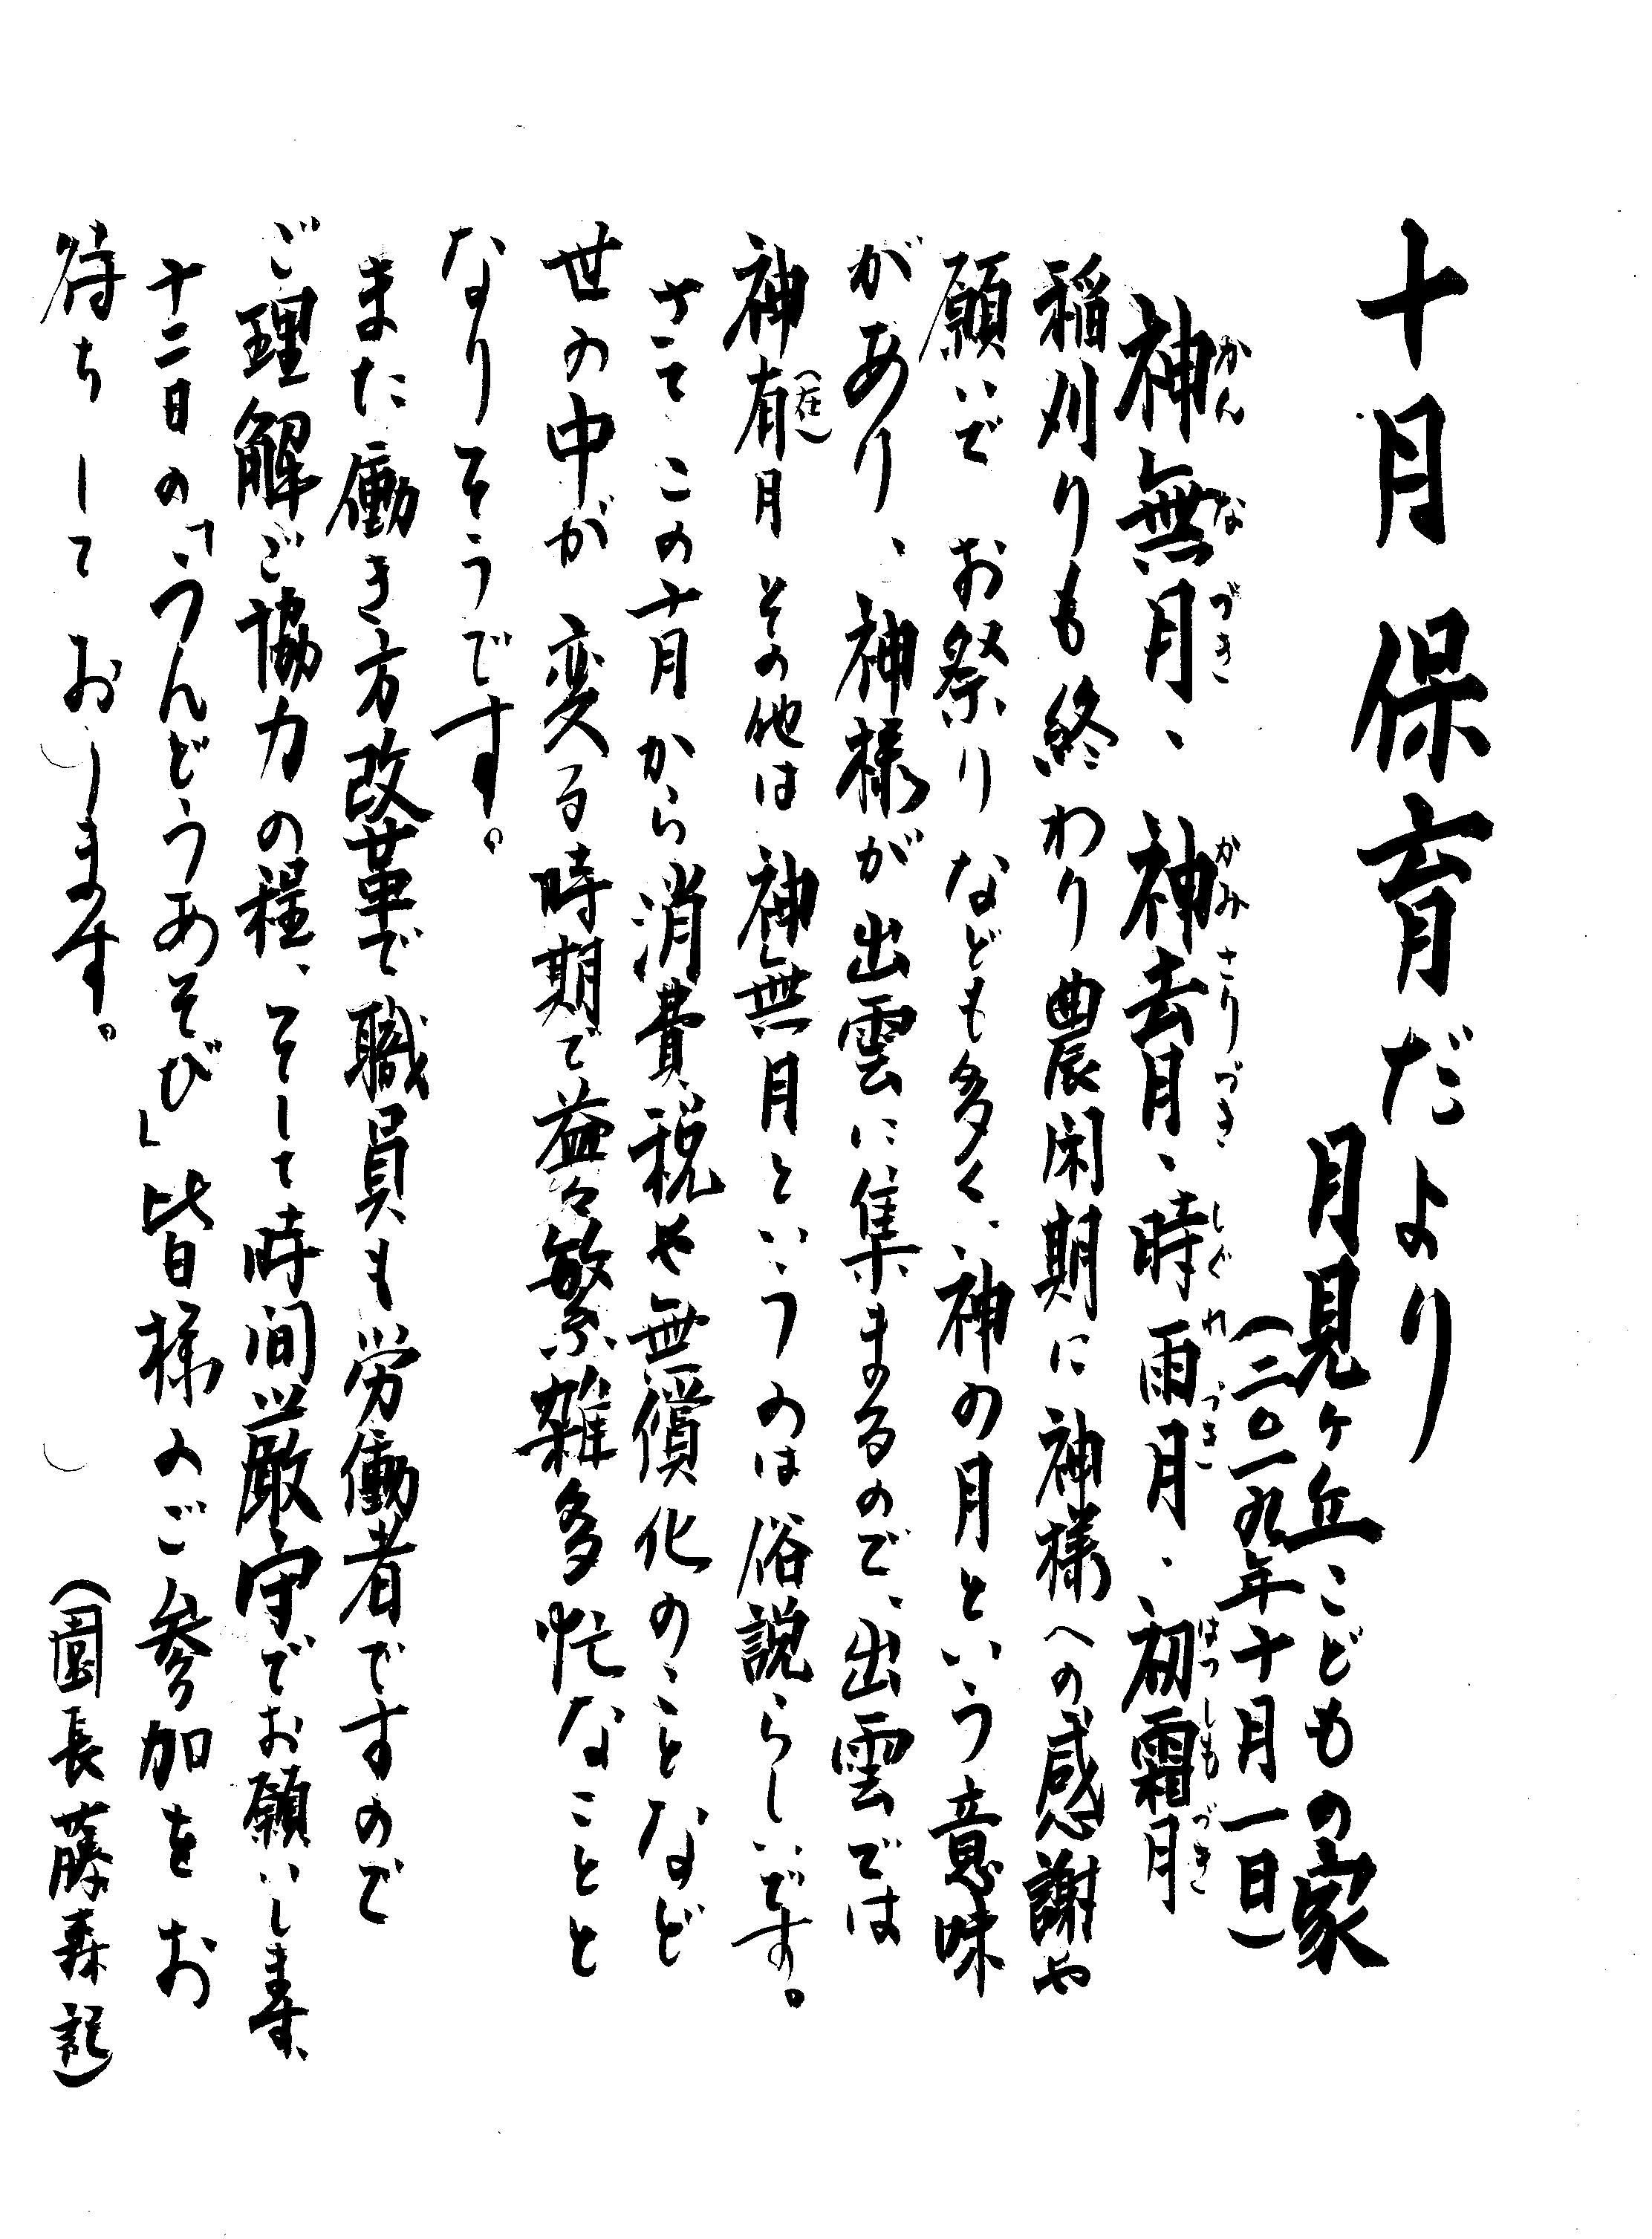 十月保育だより
月見ヶ丘こどもの家
(二〇一九年十月一日)
神無月、神去月、時雨月、初霜月
かんなづき かみさりづき しぐれづき はつしもづき
稲刈りも終わり農閑期に神様への感謝や
願いで お祭りなども多く、神の月という意味
があり、神様が出雲に集まるので、出雲では
神有(在)月その他は神無月というのは俗説らしいです。
さてこの十月から消費税や無償化のことなど
世の中が変る時期で益々繁雑多忙なことと
なりそうです。
また働き方改革で職員も労働者ですので
ご理解ご協力の程、そして時間厳守でお願いします、
十二日の「うんどうあそび」皆様のご参加をお
待ちしております。
(園長 藤森 記)